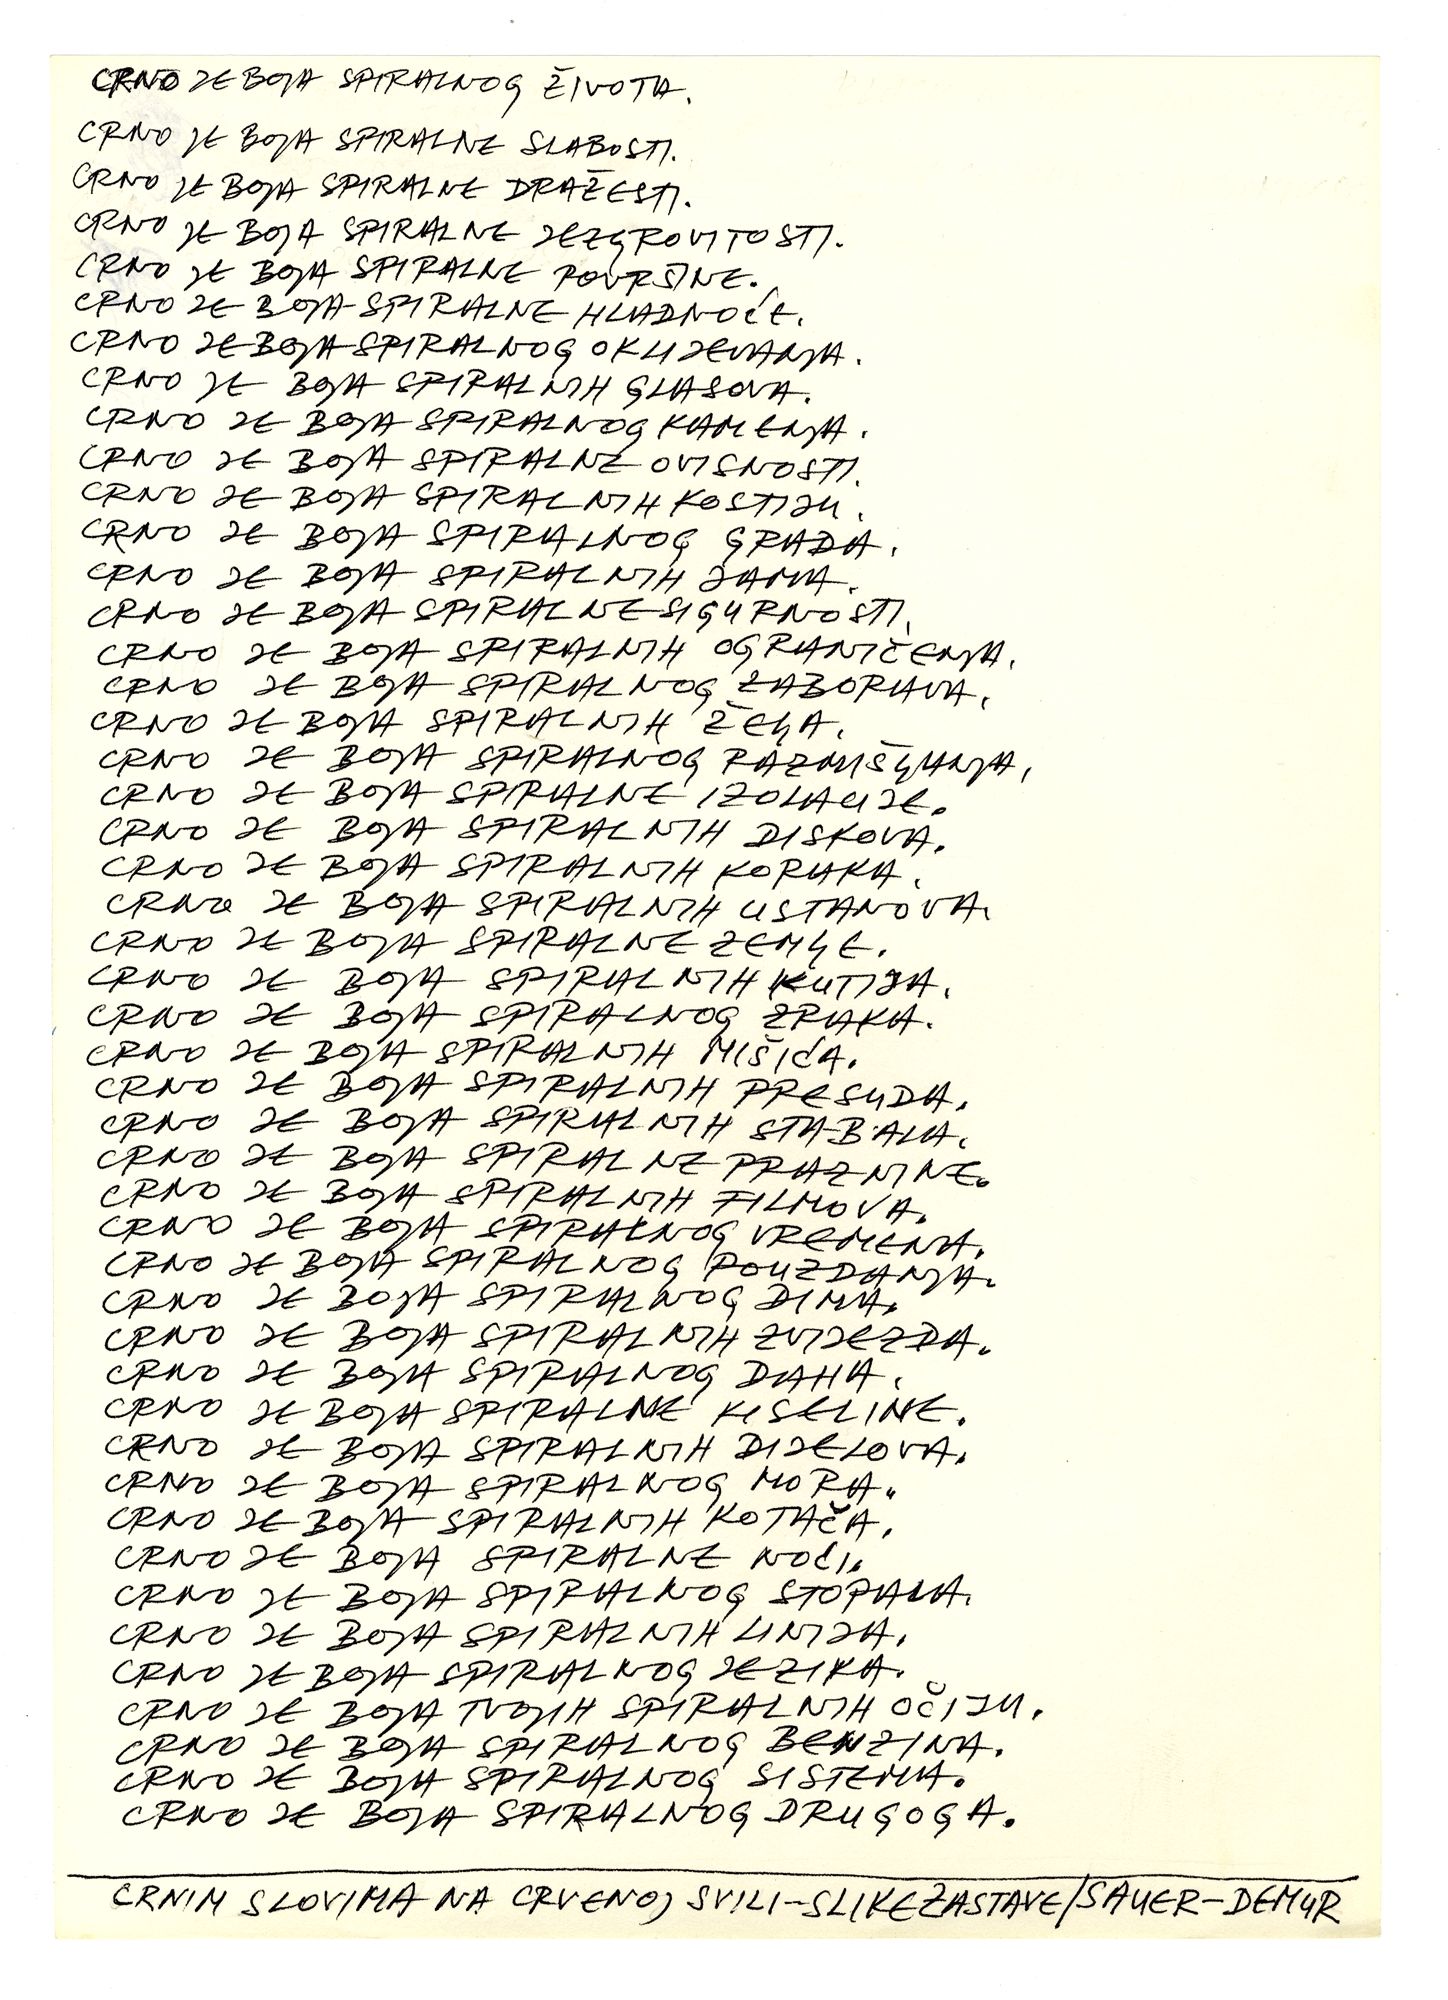 CRNO JE BOJA SPIRALNOG ŽIVOTA.
CRNO JE BOJA SPIRALNE SLABOSTI.
CRNO JE BOJA SPIRALNE DRAŽESTI.
CRNO JE BOJA SPIRALNE JEZGROVITOSTI.
CRNO JE BOJA SPIRALNE POVRŠINE.
CRNO JE BOJA SPIRALNE HLADNOĆE.
CRNO JE BOJA SPIRALNOG OKLIJEVANJA.
CRNO JE BOJA SPIRALNIH GLASOVA.
CRNO JE BOJA SPIRALNOG KAMENJA.
CRNO JE BOJA SPIRALNE OVISNOSTI.
CRNO JE BOJA SPIRALNIH KOSTIJU.
CRNO JE BOJA SPIRALNOG GRADA.
CRNO JE BOJA SPIRALNIH JAMA.
CRNO JE BOJA SPIRALNE SIGURNOSTI.
CRNO JE BOJA SPIRALNIH OGRANIČENJA.
CRNO JE BOJA SPIRALNOG ZABORAVA.
CRNO JE BOJA SPIRALNIH ŽELJA.
CRNO JE BOJA SPIRALNOG RAZMIŠLJANJA.
CRNO JE BOJA SPIRALNE IZOLACIJE.
CRNO JE BOJA SPIRALNIH DISKOVA.
CRNO JE BOJA SPIRALNIH KORAKA.
CRNO JE BOJA SPIRALNIH USTANOVA.
CRNO JE BOJA SPIRALNE ZEMLJE.
CRNO JE BOJA SPIRALNIH KUTIJA.
CRNO JE BOJA SPIRALNOG ZRAKA.
CRNO JE BOJA SPIRALNIH MIŠIĆA.
CRNO JE BOJA SPIRALNIH PRESUDA.
CRNO JE BOJA SPIRALNIH STABALA.
CRNO JE BOJA SPIRALNE PRAZNINE.
CRNO JE BOJA SPIRALNIH FILMOVA.
CRNO JE BOJA SPIRALNOG VREMENA.
CRNO JE BOJA SPIRALNOG POUZDANJA.
CRNO JE BOJA SPIRALNOG DIMA.
CRNO JE BOJA SPIRALNIH ZVIJEZDA.
CRNO JE BOJA SPIRALNOG DAHA.
CRNO JE BOJA SPIRALNE KISELINE.
CRNO JE BOJA SPIRALNIH DIJELOVA.
CRNO JE BOJA SPIRALNOG MORA.
CRNO JE BOJA SPIRALNIH KOTAČA.
CRNO JE BOJA SPIRALNE NOĆI.
CRNO JE BOJA SPIRALNOG STOPALA.
CRNO JE BOJA SPIRALNIH LINIJA.
CRNO JE BOJA SPIRALNOG JEZIKA.
CRNO JE BOJA TVOJIH SPIRALNIH OČIJU.
CRNO JE BOJA SPIRALNOG BENZINA.
CRNO JE BOJA SPIRALNOG SISTEMA.
CRNO JE BOJA SPIRALNOG DRUGOGA.
CRNIM SLOVIMA NA CRVENOJ SVILI-SLIKE ZASTAVE/SAUER-DEMUR